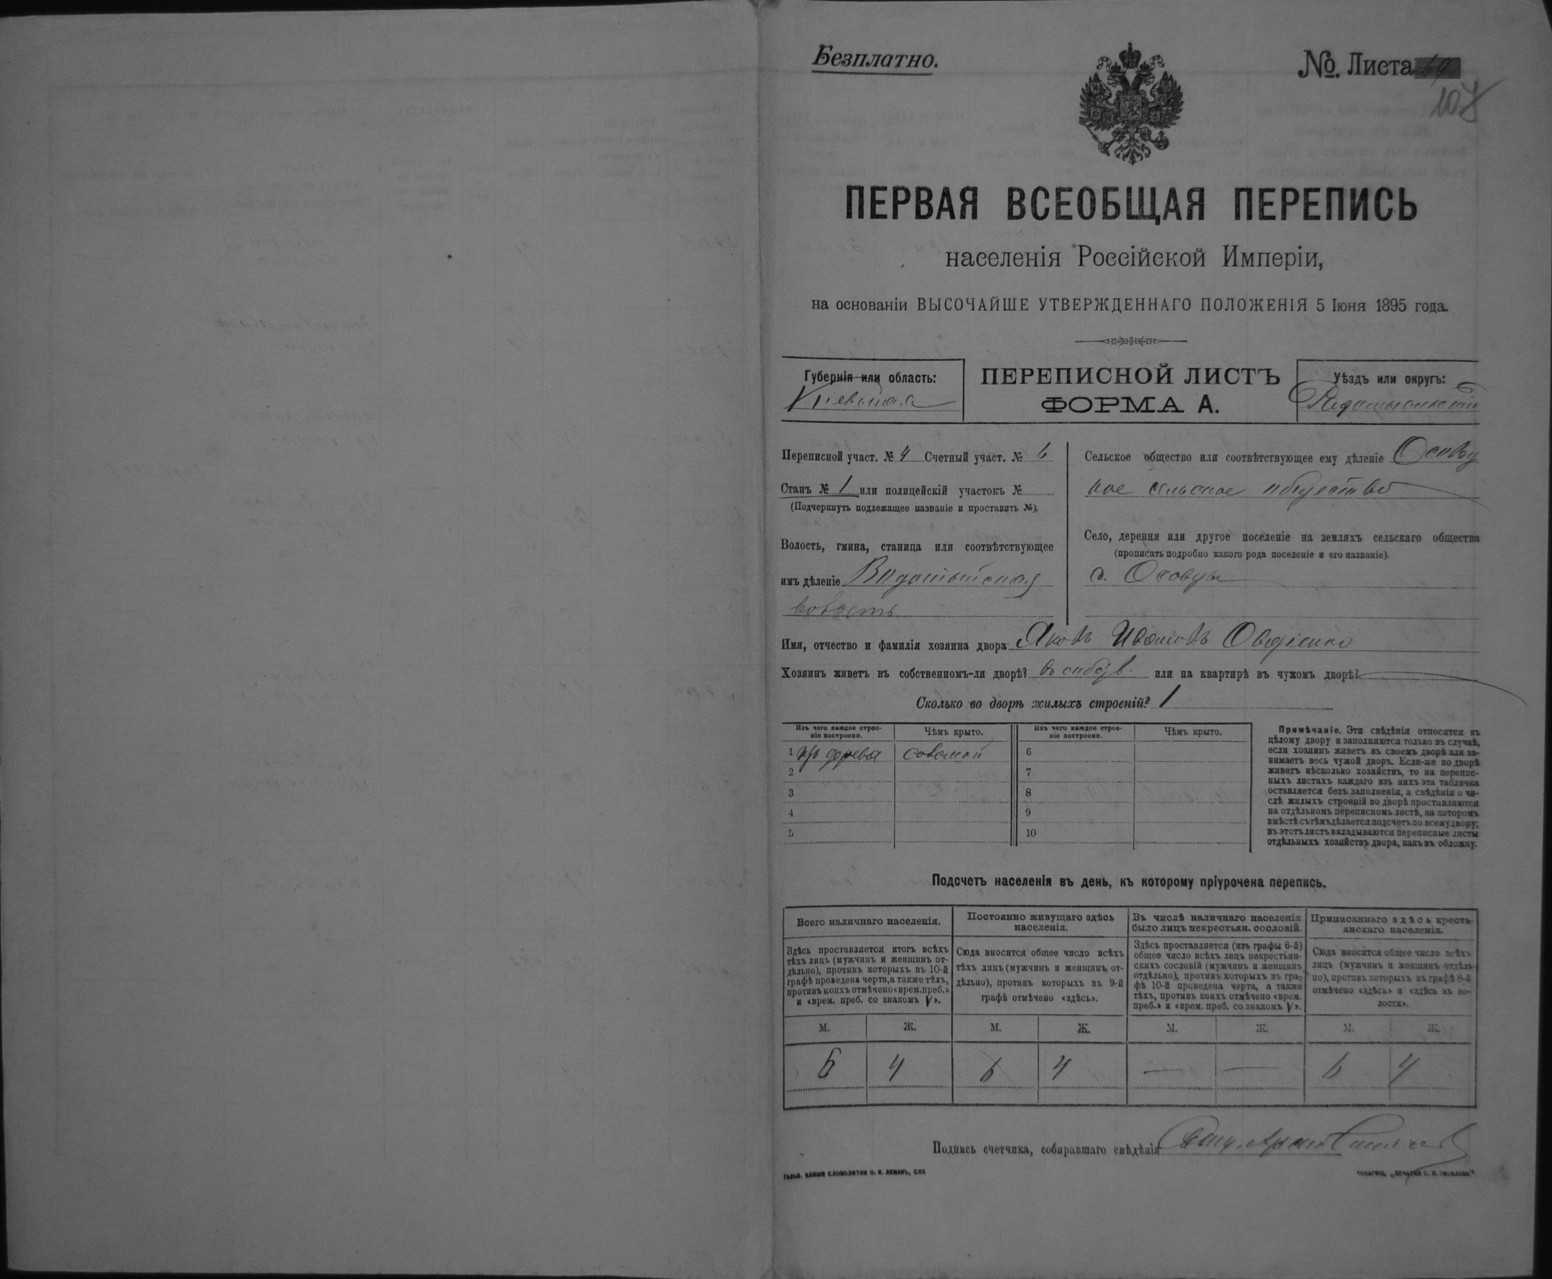 Безплатно.
№. Листа
107
ПЕРВАЯ ВСЕОБЩАЯ ПЕРЕПИСЬ
населенія Россійской Имперіи,
на основаніи ВЫСОЧАЙШЕ УТВЕРЖДЕННАГО ПОЛОЖЕНІЯ 5 Іюня 1895 года.
Губернія или область:
Кіевская
ПЕРЕПИСНОЙ ЛИСТЪ
ФОРМА А.
Уѣздъ или округъ:
Радомысльскій
Переписной участ. № 4 Счетный участ. № 6
Станъ № 1 или полицейскій участокъ №
(Подчеркнуть подлежащее названіе и проставить №).
Волость, гмина, станица или соотвѣтствующее
имъ дѣленіе
волость
Сельское общество или соотвѣтствующее ему дѣленіе Осовец
кое сельское общество
Село, деревня или другое поселеніе на земляхъ сельскаго общества
(прописать подробно какого рода поселеніе и его названіе).
д. Осовцы
Имя, отчество и фамилія хозяина двора Яковъ Ивановъ Овдіенко
Хозяинъ живетъ въ собственномъ-ли дворѣ? въ собств. или на квартирѣ въ чужомъ дворѣ?
Сколько во дворѣ жилыхъ строеній? 1
Изъ чего каждое строе-
ніе построено.
Чѣмъ крыто.
Изъ чего каждое строе-
ніе построено.
Чѣмъ крыто.
1 изъ дерева соломой 6
2 7
3 8
4 9
5 10
Примѣчаніе. Эти свѣдѣнія относятся къ
цѣлому двору и заполняются только въ случаѣ,
если хозяинъ живетъ въ своемъ дворѣ или за-
нимаетъ весь чужой дворъ. Если-же во дворѣ
живетъ нѣсколько хозяйствъ, то на перепис-
ныхъ листахъ каждаго изъ нихъ эта табличка
оставляется безъ заполненія, а свѣдѣнія о чи-
слѣ жилыхъ строеній во дворѣ проставляются
на отдѣльномъ переписномъ листѣ, на которомъ
вмѣстѣ съ тѣмъ дѣлается подсчетъ по всему двору;
въ этотъ листъ вкладываются переписные листы
отдѣльныхъ хозяйствъ двора, какъ въ обложку.
Подсчетъ населенія въ день, къ которому пріурочена перепись.
Всего наличнаго населенія.
Здѣсь проставляется итогъ всѣхъ
тѣхъ лицъ (мужчинъ и женщинъ от-
дѣльно), противъ которыхъ въ 10-й
графѣ проведена черта, а также тѣхъ,
противъ коихъ отмѣчено «врем. преб.»
и «врем. преб. со знакомъ V».
Постоянно живущаго здѣсь
населенія.
Сюда вносится общее число всѣхъ
тѣхъ лицъ (мужчинъ и женщинъ от-
дѣльно), противъ которыхъ въ 9-й
графѣ отмѣчено «здѣсь».
Въ числѣ наличнаго населенія
было лицъ некрестьян. сословій.
Здѣсь проставляется (изъ графы 6-й)
общее число всѣхъ лицъ некрестьян-
скихъ сословій (мужчинъ и женщинъ
отдѣльно), противъ которыхъ въ гра-
фѣ 10-й проведена черта, а также
тѣхъ, противъ коихъ отмѣчено «врем.
преб.» и «врем. преб. со знакомъ V».
Приписаннаго здѣсь кресть-
янскаго населенія.
Сюда вносится общее число всѣхъ
лицъ (мужчинъ и женщинъ отдѣль-
но), противъ которыхъ въ графѣ 8-й
отмѣчено «здѣсь» и «здѣсь къ во-
лости».
М. Ж. М. Ж. М. Ж. М. Ж.
6 4 6 4 — — 6 4
Подпись счетчика, собиравшаго свѣдѣнія